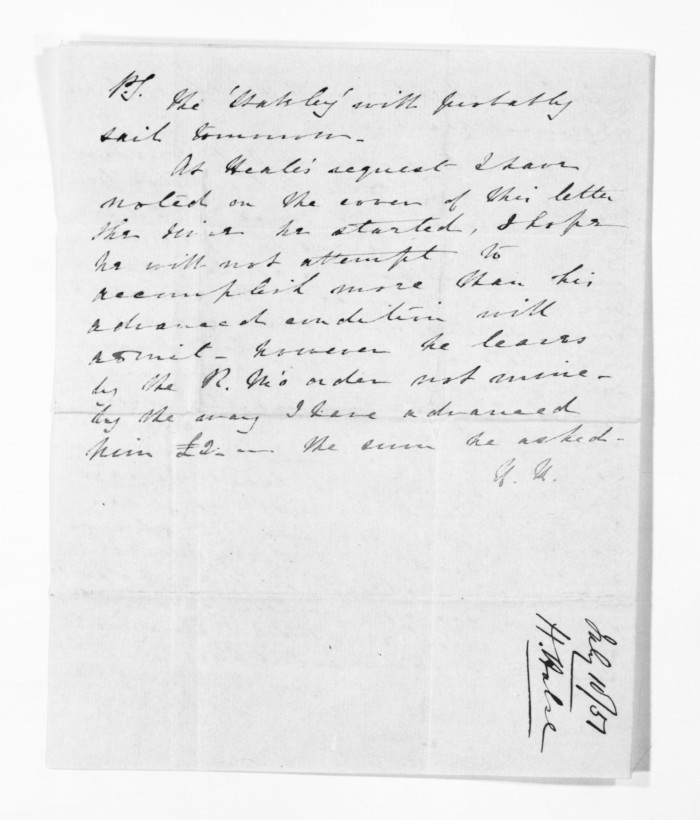 P.S. The 'Stately' will probably
sail tomorrow.
At Heale's request I have
noted on the cover of this letter
the time he started, I hope
he will not attempt to
accomplish more than his
advanced condition will
admit - however he leaves
by the R. M's order not mine -
by the way I have advanced
him £2 - the sum he asked -
H. H.
July 10/57
H. Halse